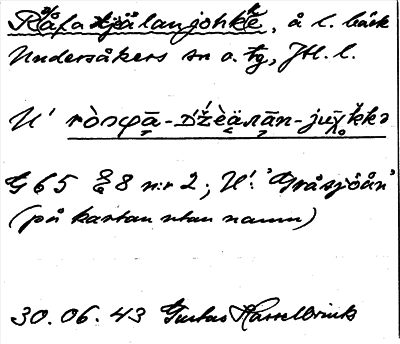 Råfatjälanjohkē, å l. bäck
Undersåkers sn o. tg, Jtl. l.
U'
G 65 8 n:r 2; U': 'Gråsjöån'
(på kartan utan namn)
30.06.43 Gustav Hasselbrink